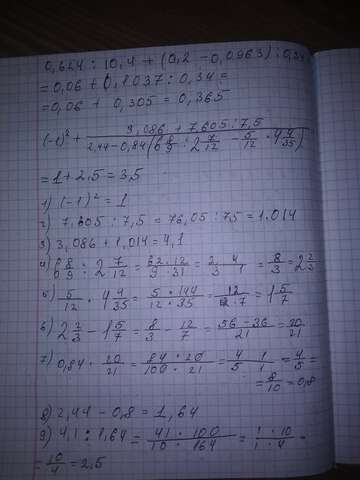 0,624 : 10,4 + (0,2 - 0,0963) : 0,34
= 0,06 + 0,1037 : 0,34 =
= 0,06 + 0,305 = 0,365
(-1)² + 3,086 + 7,605 : 7,5 / 2,44 - 0,84 (6 8/9 : 2 7/12 - 5/12 · 4 4/35)
= 1 + 2,5 = 3,5
1) (-1)² = 1
2) 7,605 : 7,5 = 76,05 : 75 = 1.014
3) 3,086 + 1,014 = 4,1
4) 6 8/9 : 2 7/12 = 62 · 12 / 9 · 31 = 2 · 4 / 3 · 1 = 8/3 = 2 2/3
5) 5/12 · 4 4/35 = 5 · 144 / 12 · 35 = 12/7 = 1 5/7
6) 2 2/3 - 1 5/7 = 8/3 - 12/7 = 56 - 36 / 21 = 20/21
7) 0,84 · 20/21 = 84 · 20 / 100 · 21 = 4/5 · 1/1 = 4/5 =
= 8/10 = 0,8
8) 2,44 - 0,8 = 1,64
9) 4,1 : 1,64 = 41 · 100 / 10 · 164 = 1 · 10 / 1 · 4 =
= 10/4 = 2,5